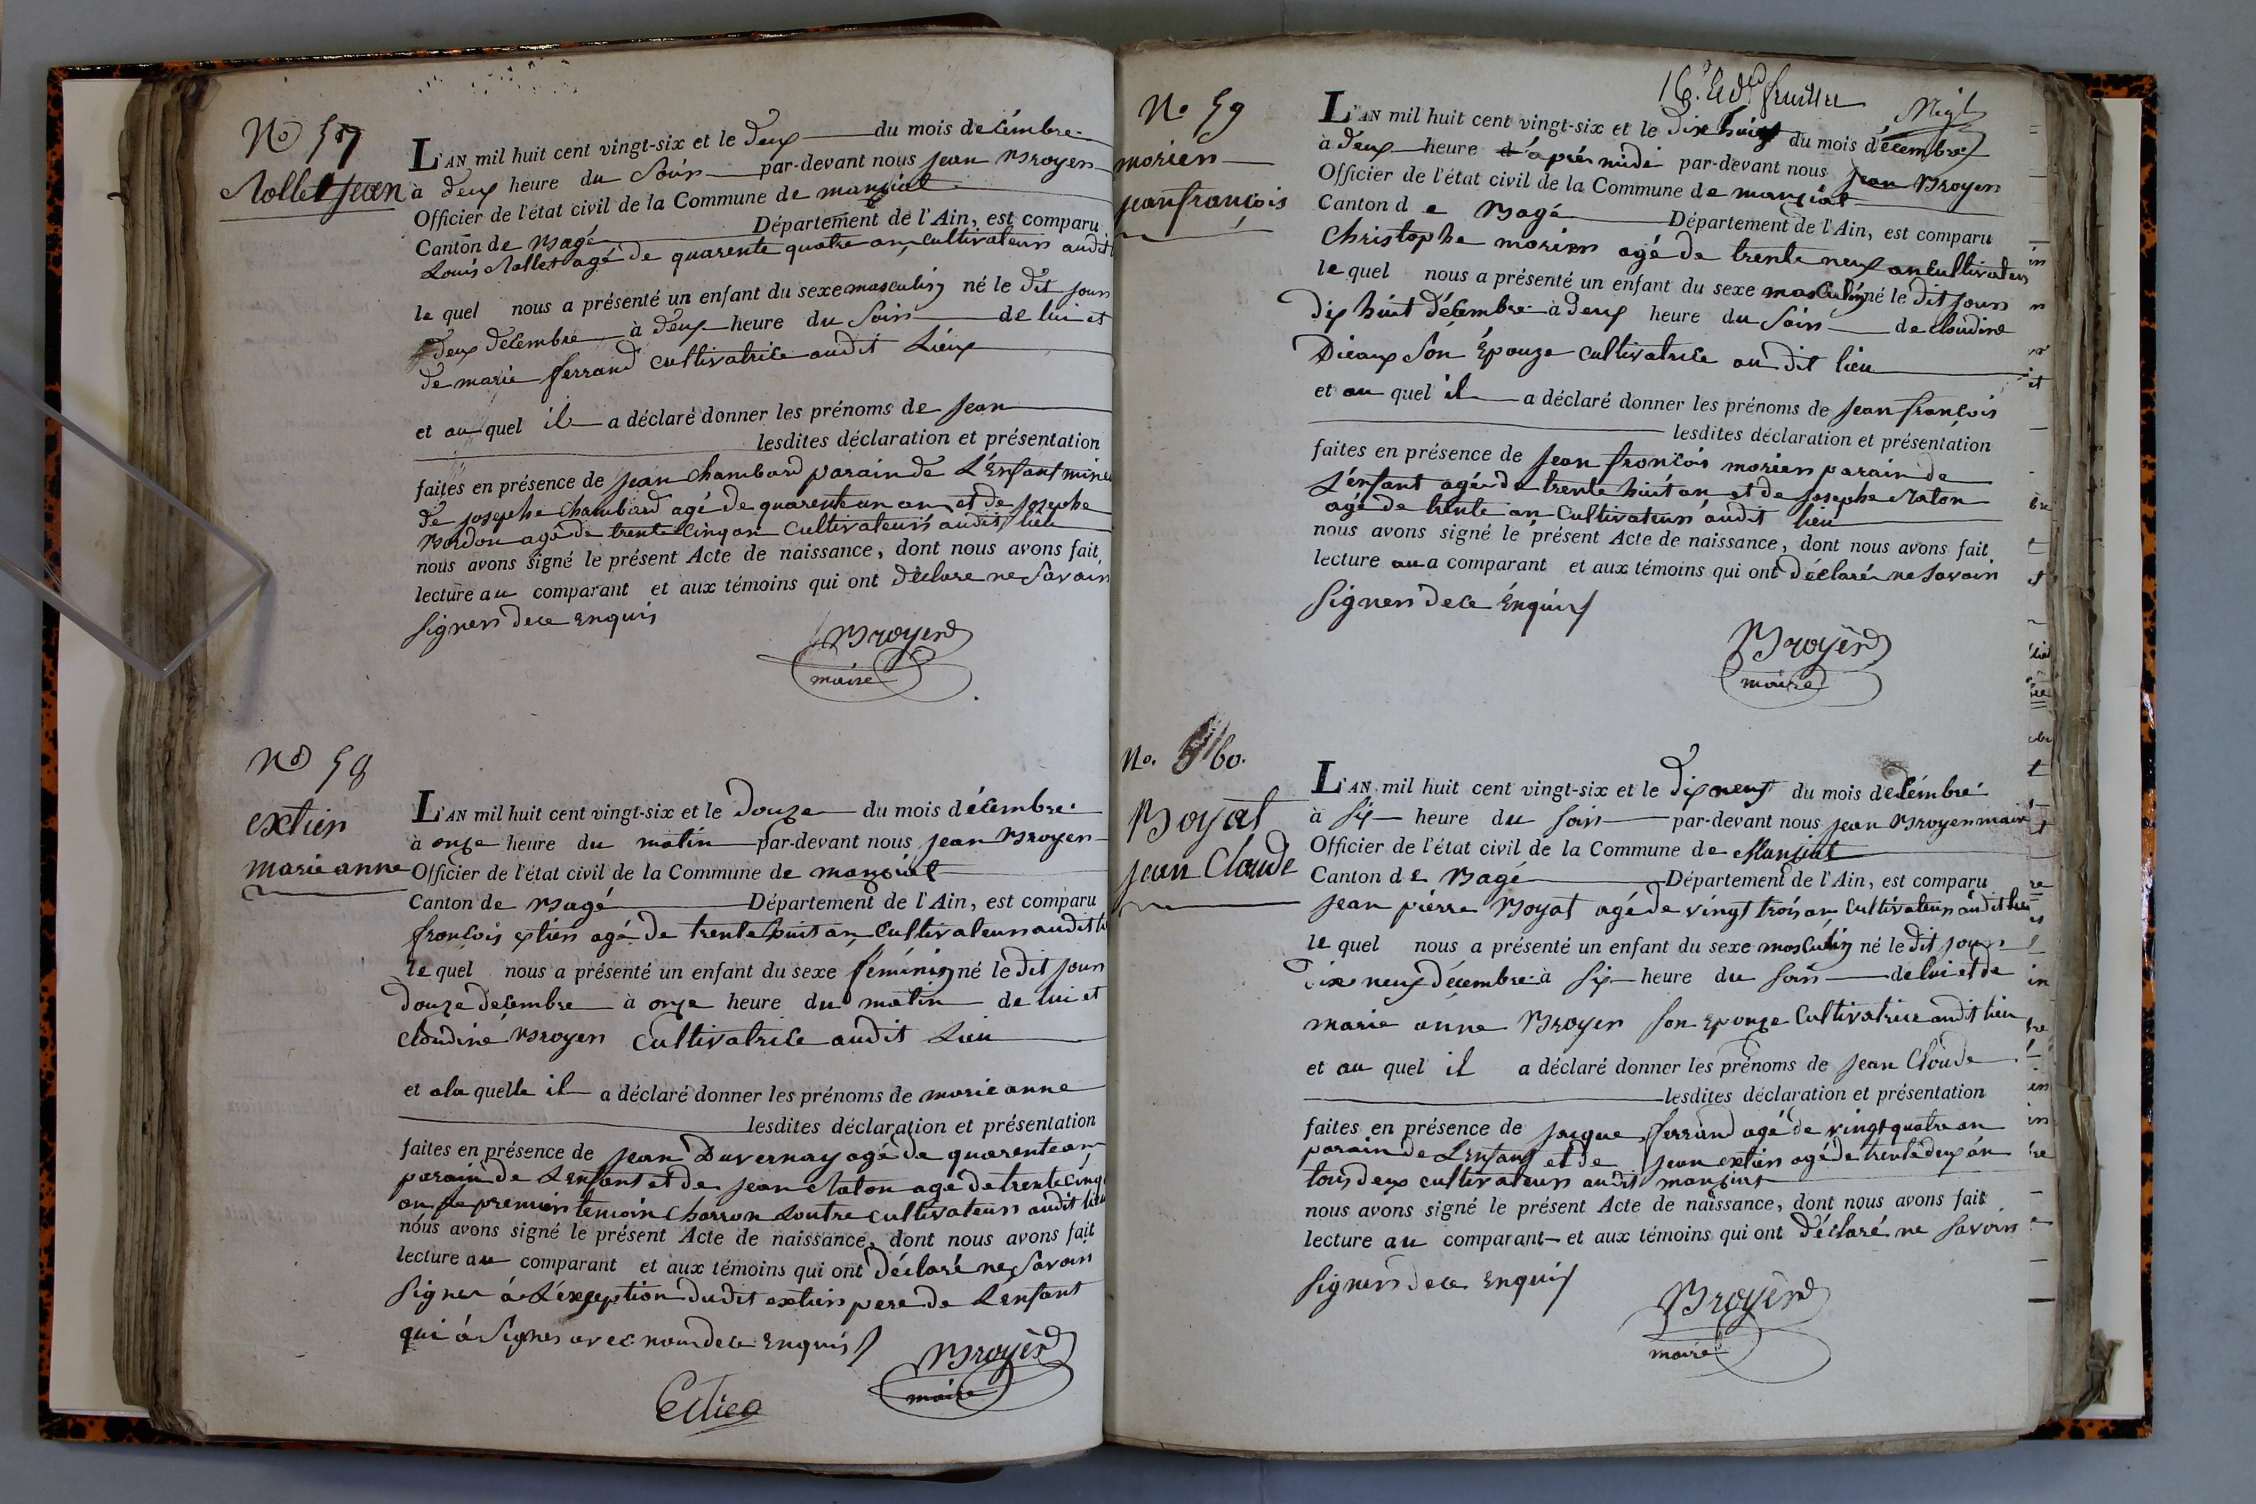 No 57
Rollet Jean
L'AN mil huit cent vingt-six et le deux du mois decémbre
à deux heure du Soir par-devant nous jean Broyer
Officier de l'état civil de la Commune de manziat
Canton de Bagé Département de l'Ain, est comparu
Louis Rollet agé de quarente quatre an cultivateur audit
le quel nous a présenté un enfant du sexe masculin né le dit jour
deux décembre à deux heure du Soir de lui et
de marie ferrand cultivatrice audit Lieux
et au quel il a déclaré donner les prénoms de Jean
lesdites déclaration et présentation
faites en présence de Jean Chambard parain de L'Enfant
de josephe Chambard agé de quarente un an et de josephe
Bordon agé de trente cinq an cultivateurs audit lieu
nous avons signé le présent Acte de naissance, dont nous avons fait
lecture au comparant et aux témoins qui ont déclare ne Savoir
Signer de ce Enquis
Broyer
maire
No 58
extier
marie anne
L'AN mil huit cent vingt-six et le Douze du mois décembre
à onze heure du matin par-devant nous jean Broyer
Officier de l'état civil de la Commune de manziat
Canton de Bagé Département de l'Ain, est comparu
françois extier agé de trente huit an Cultivateur audit
le quel nous a présenté un enfant du sexe féminin né le dit jour
douze decembre à onze heure du matin de lui et
cloudine Broyer cultivatrice audit Lieu
et a la quelle il a déclaré donner les prénoms de marie anne
lesdites déclaration et présentation
faites en présence de jean Duvernay agé de quarente an
parain de Lenfant et de jean Raton agé de trente cinq
an le premier temoin charron Loutre cultivateur audit lieu
nous avons signé le présent Acte de naissance, dont nous avons fait
lecture au comparant et aux témoins qui ont déclaré ne Savoir
Signer à L'exception dudit extier pere de Lenfant
qui à Signer avec nous de ce Enquis
Broyer
maire
No 59
morier
jean françois
16. feuillet
L'AN mil huit cent vingt-six et le dix huit du mois décembre
à deux heure d'après midi par-devant nous jean Broyer
Officier de l'état civil de la Commune de manziat
Canton de Bagé Département de l'Ain, est comparu
christophe morier agé de trente neuf an cultivateur
le quel nous a présenté un enfant du sexe masculin né le dit jour
dix huit décembre à deux heure du Soir de cloudine
son Épouze cultivatrice au dit lieu
et au quel il a déclaré donner les prénoms de jean françois
lesdites déclaration et présentation
faites en présence de jean françois morier parain de
L'énfant agé de trente huit an et de josephe Raton
agé de trente an cultivateur audit lieu
nous avons signé le présent Acte de naissance, dont nous avons fait
lecture au comparant et aux témoins qui ont déclaré ne Savoir
Signer de ce Enquis
Broyer
maire
No. 60.
Boyat
jean Claude
L'AN mil huit cent vingt-six et le dix neuf du mois decémbre
à Six heure du soir par-devant nous jean Broyer maire
Officier de l'état civil de la Commune de Manziat
Canton de Bagé Département de l'Ain, est comparu
jean piérre Boyat agé de vingt trois an cultivateur audit lieu
le quel nous a présenté un enfant du sexe masculin né le dit jour
Dix neuf décembre à Six heure du soir de lui et de
marie anne Broyer son Epouze Cultivatrice audit lieu
et au quel il a déclaré donner les prénoms de jean Cloude
lesdites déclaration et présentation
faites en présence de jacque ferrand agé de vingt quatre an
parain de Lenfant et de jean extier agé de trente deux an
tous deux cultivateurs audit manziat
nous avons signé le présent Acte de naissance, dont nous avons fait
lecture au comparant et aux témoins qui ont déclaré ne Savoir
Signer de ce Enquis
Broyer
maire